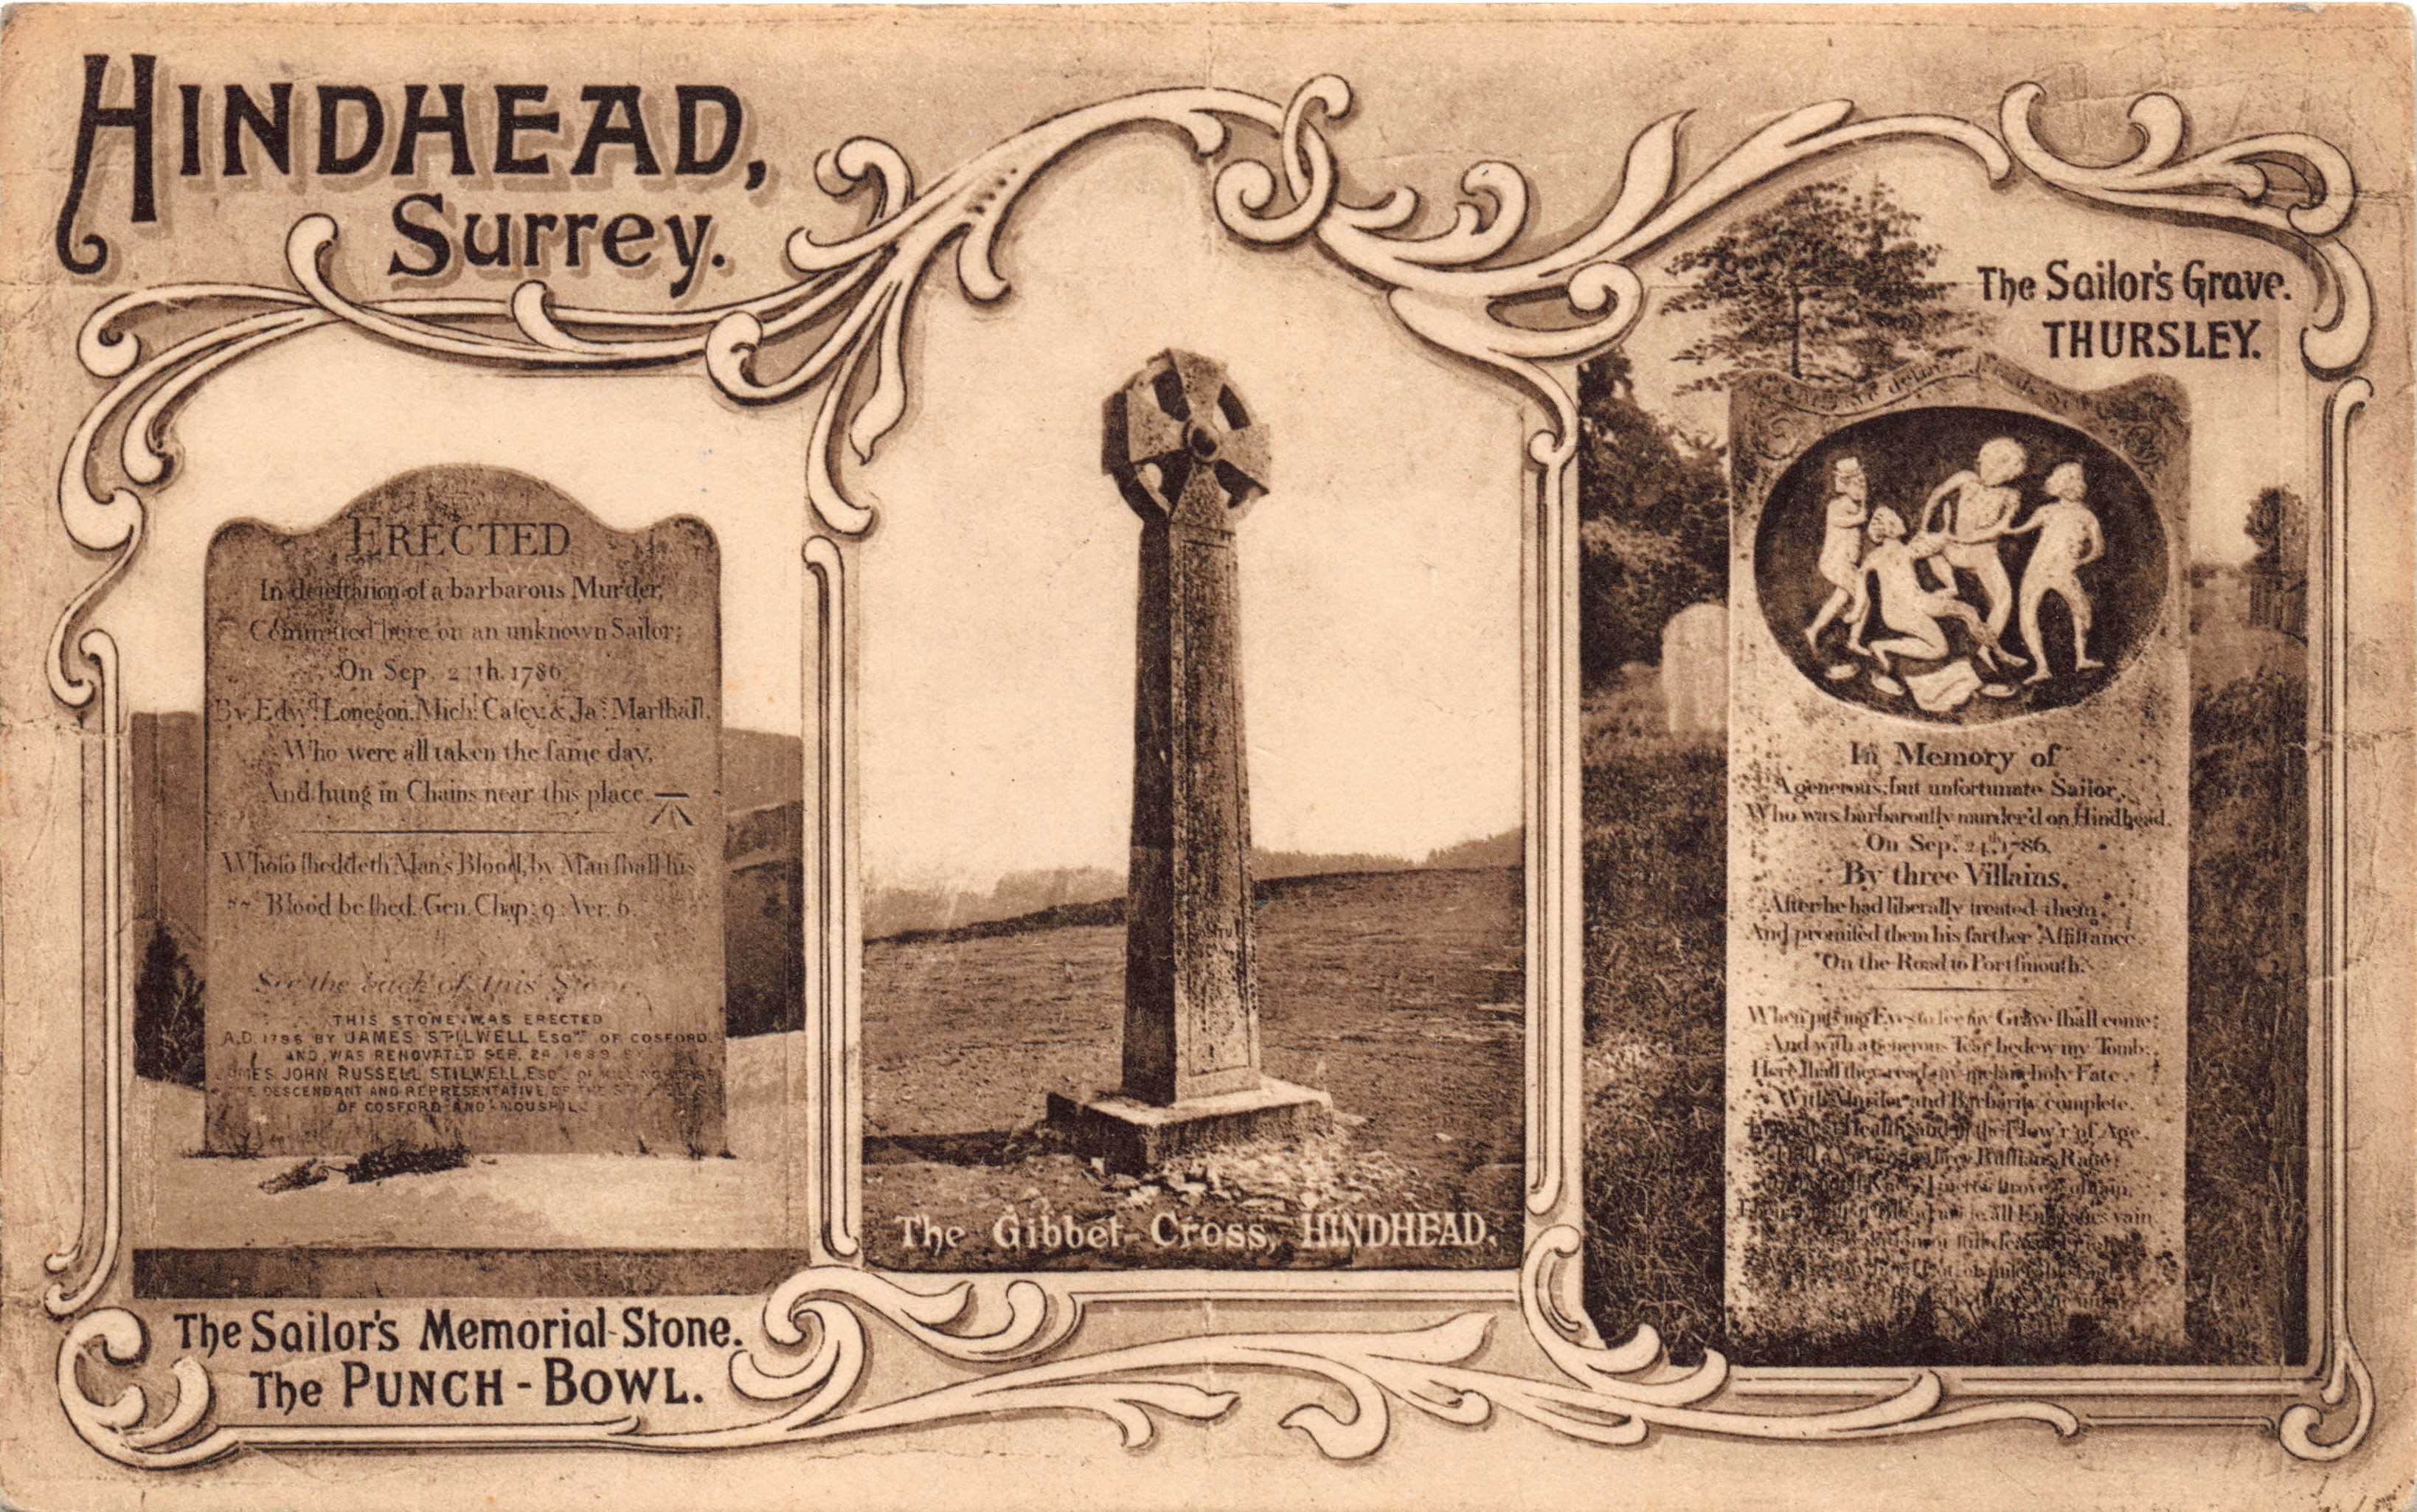 HINDHEAD,
Surrey.
ERECTED
In deteſtation of a barbarous Murder,
Committed here on an unknown Sailor;
On Sep. 2 th. 1786
By Edwd. Lonegon, Michl. Caſey & Jas. Marſhall,
Who were all taken the ſame day,
And hung in Chains near this place.
Whoſo ſheddeth Man's Blood, by Man ſhall his
Blood be ſhed. Gen. Chap: 9: Ver. 6.
See the back of this Stone
THIS STONE WAS ERECTED
A.D. 1786 BY JAMES STILWELL ESQRE OF COSFORD.
AND WAS RENOVATED SEP. 24 1889 BY
JAMES JOHN RUSSELL STILWELL ESQ. OF
DESCENDANT AND REPRESENTATIVE OF THE
OF COSFORD AND MOUSHILL
The Sailor's Memorial-Stone.
The PUNCH-BOWL.
The Gibbet-Cross, HINDHEAD.
The Sailor's Grave.
THURSLEY.
In Memory of
A generous, but unfortunate Sailor,
Who was barbarouſly murder'd on Hindhead,
On Sep. 24th. 1786,
By three Villains,
After he had liberally treated them,
And promiſed them his farther Aſſiſtance,
On the Road to Portſmouth.
When pitying Eyes to ſee my Grave ſhall come;
And with a generous Tear bedew my Tomb;
Here ſhall they read my melancholy Fate,
With Murder and Barbarity complete.
Health, and in the Flow'r of Age,
three Ruffians Rage;
ſtrove
all vain